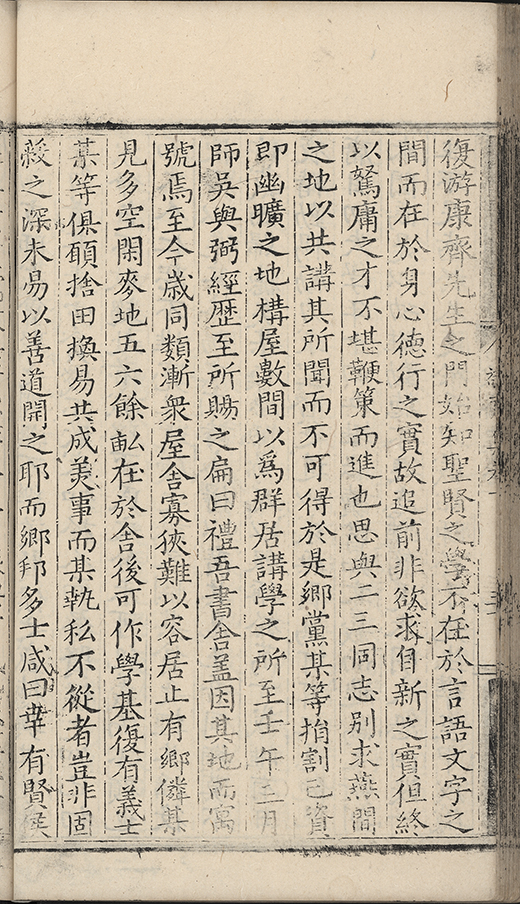 復游康齊先生之門始知聖賢之學不在於言語文字之
間而在於身心德行之實故追前非欲求自新之實但終
以駑庸之才不堪鞭策而進也思與二三同志別求燕間
之地以共講其所聞而不可得於是鄉黨某等捐割己資
即幽曠之地構屋數間以爲群居講學之所至壬午三月
師吳與弼經歷至所賜之扁曰禮吾書舍盖因其地而寓
號焉至今歲同類漸衆屋舍寡狹難以容居止有鄉僯某
見多空閑麥地五六餘畝在於舍後可作學基復有義士
某等俱願捨田換易共成美事而某執私不從者豈非固
蔽之深未易以善道開之耶而鄉邦多士咸曰幸有賢侯